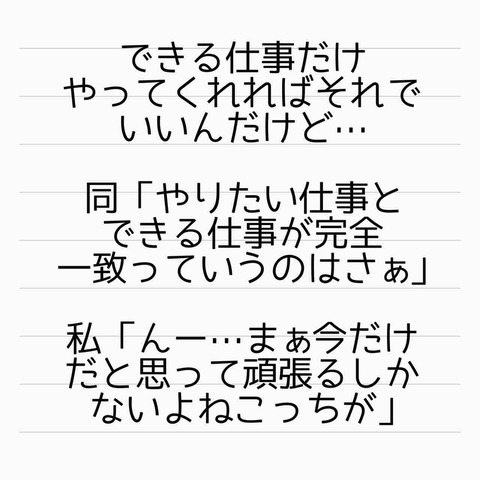 できる仕事だけ
やってくれればそれで
いいんだけど…
同「やりたい仕事と
できる仕事が完全
一致っていうのはさぁ」
私「んー…まぁ今だけ
だと思って頑張るしか
ないよねこっちが」